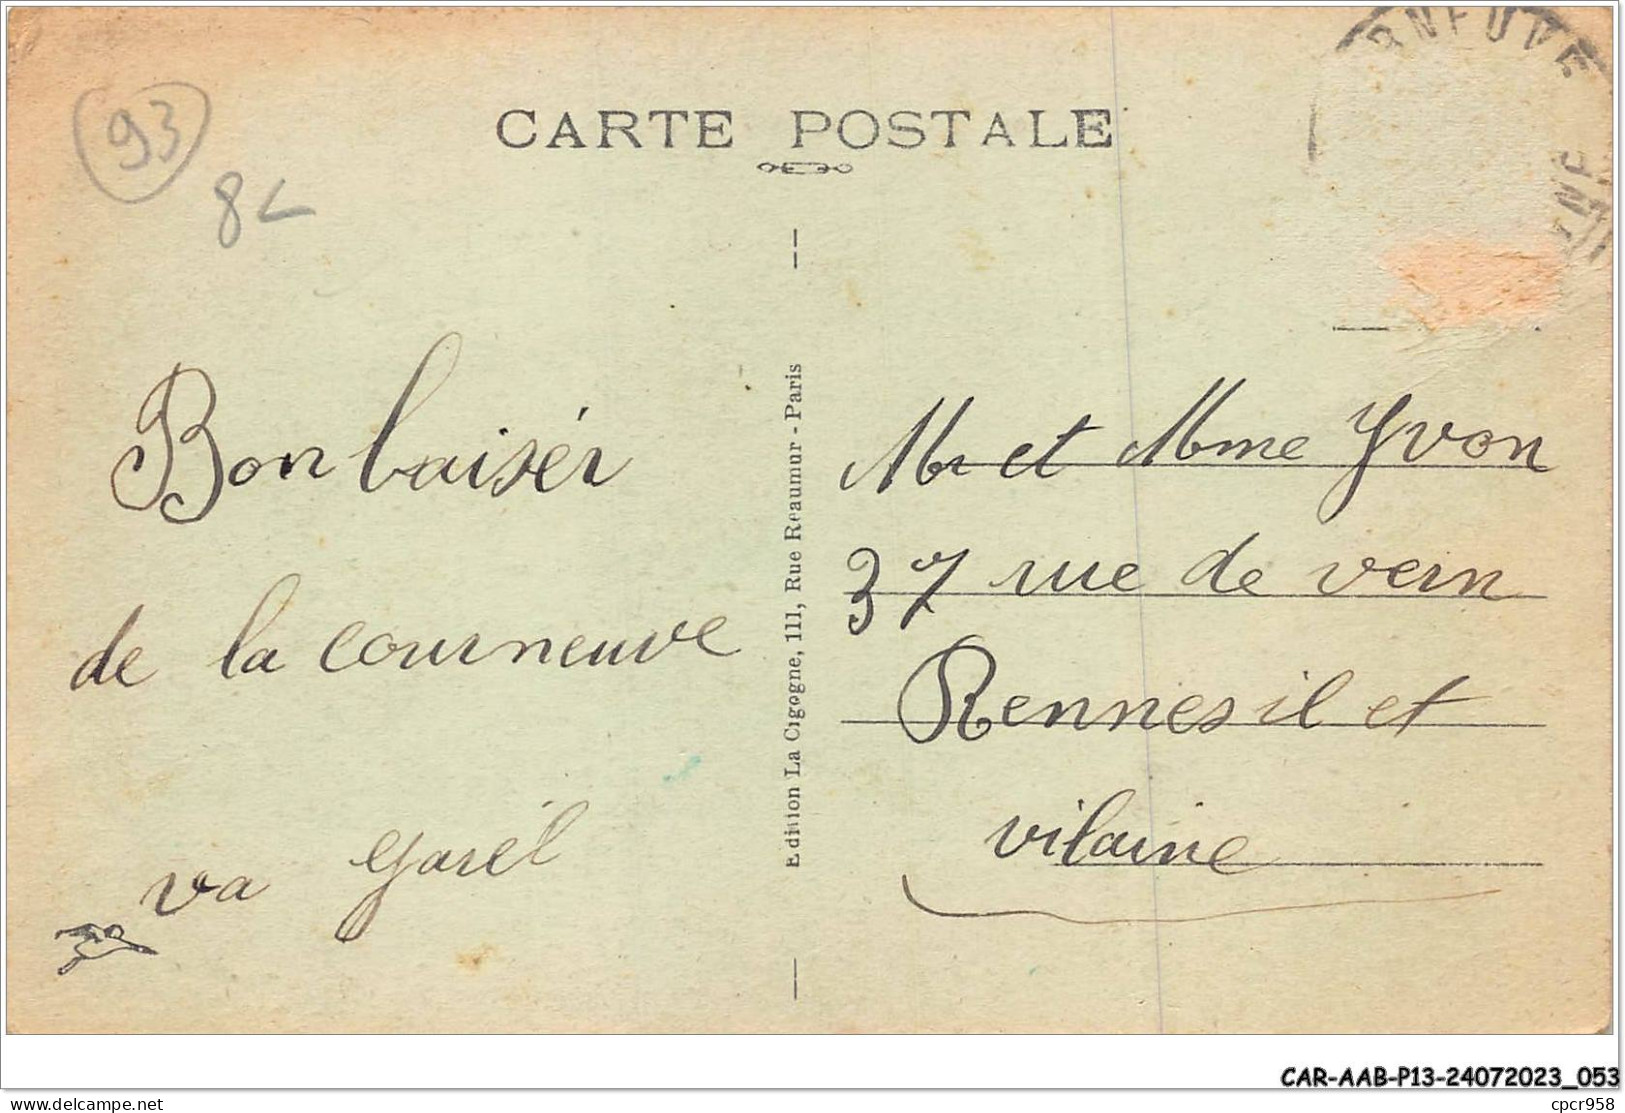 CARTE POSTALE
93
8
Bon baisér
de la courneuve
va
Edition La Cigogne, 111, Rue Reaumur - Paris
RNEUVE
Mr et Mme Yvon
37 rue de vern
Rennes il et
vilaine
CAR-AAB-P13-24072023_053
delcampe.net
cpcr958